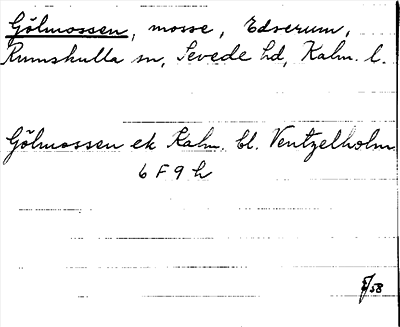 Gölmossen, mosse, Edserum,
Rumskulla sn, Sevede hd, Kalm. l.
Gölmossen ek Kalm. bl. Ventzelholm
6 F 9 h
/58